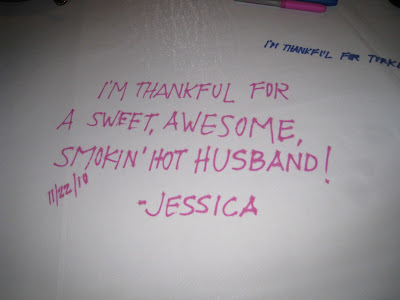 I'M THANKFUL FOR TURKE
I'M THANKFUL FOR
A SWEET, AWESOME,
SMOKIN' HOT HUSBAND!
11/22/10
-JESSICA